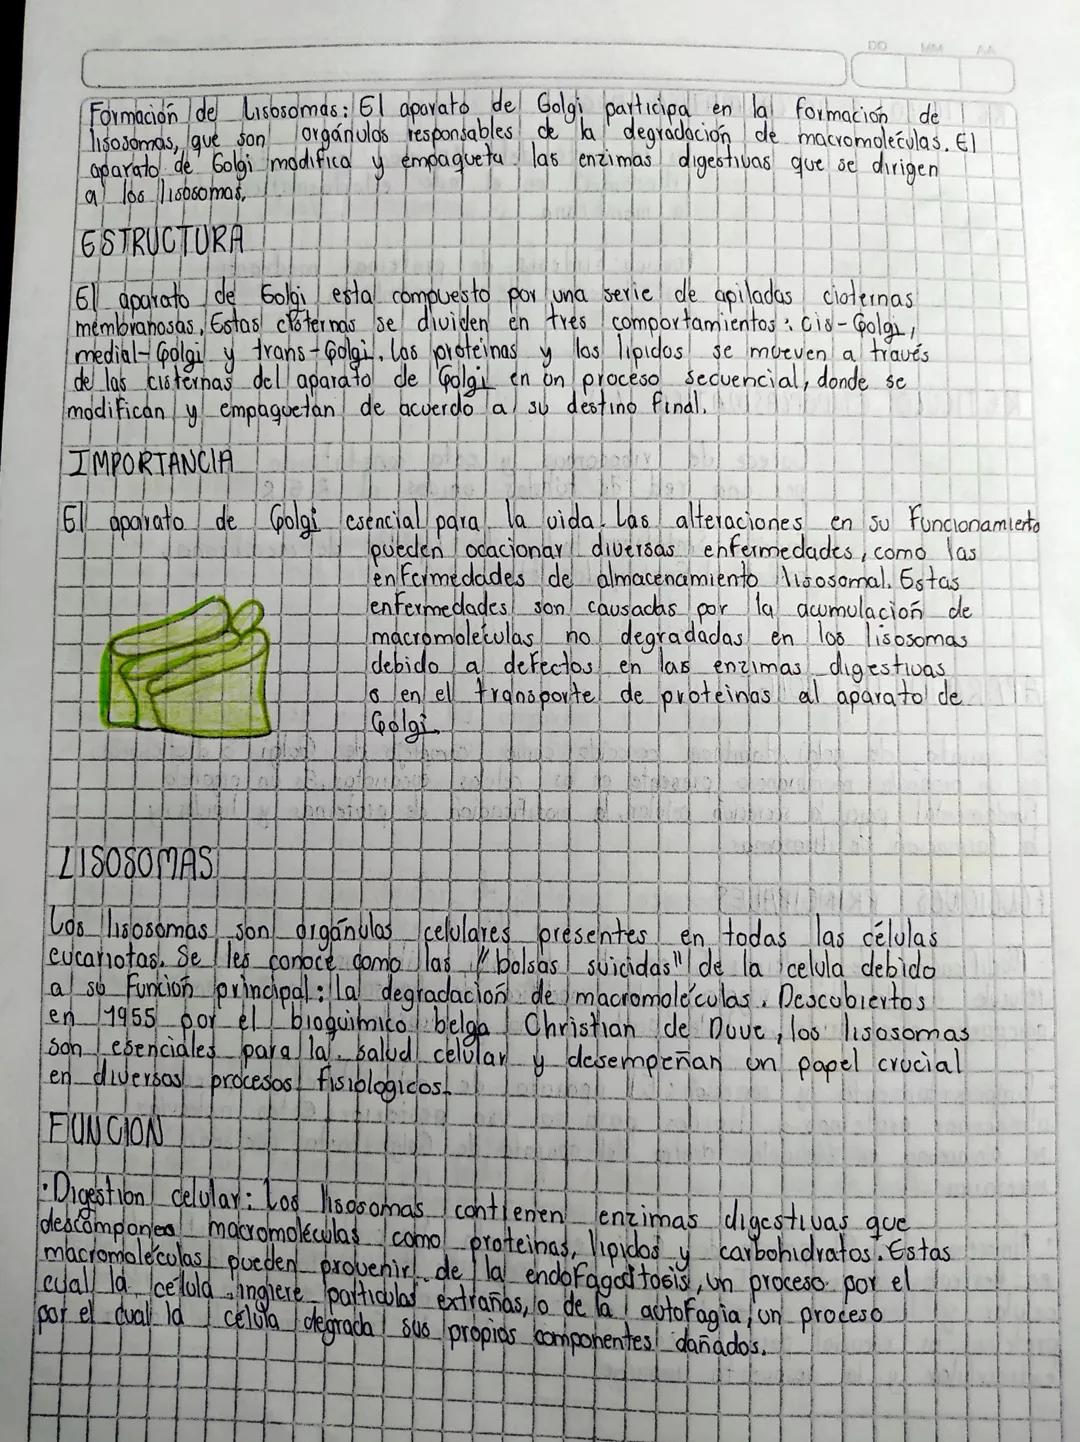 DD MM AA
Formación de Lisosomas: El aparato de Golgi participa en la formación de
lisosomas, que son orgánulos responsables de la degradación de macromoléculas. El
aparato de Golgi modifica y empaqueta las enzimas digestivas que se dirigen
a los lisosomas.
ESTRUCTURA
El aparato de Golgi esta compuesto por una serie de apiladas cisternas
membranosas. Estas cisternas se dividen en tres comportamientos: Cis-Golgi,
medial-Golgi y trans-Golgi. Las proteinas y los lipidos se mueven a través
de las cisternas del aparato de Golgi en un proceso secuencial, donde se
modifican y empaquetan de acuerdo a su destino final.
IMPORTANCIA
El aparato de Golgi esencial para la vida. Las alteraciones en su funcionamiento
pueden ocacionar diversas enfermedades, como las
enfermedades de almacenamiento lisosomal. Estas
enfermedades son causadas por la acumulación de
macromoléculas no degradadas en los lisosomas
debido a defectos en las enzimas digestivas
o en el transporte de proteinas al aparato de
Golgi.
LISOSOMAS
Los lisosomas son orgánulos celulares presentes en todas las células
eucariotas. Se les conoce como las "bolsas suicidas" de la celula debido
a su Función principal: la degradación de macromoléculas. Descubiertos
en 1955 por el bioquimico belga Christian de Duve, los lisosomas
son esenciales para la salud celular y desempeñan un papel crucial
en diversos procesos fisiologicos.
FUNCION
• Digestion celular: Los lisosomas contienen enzimas digestivas que
descomponen macromoléculas como proteinas, lipidos y carbohidratos. Estas
macromoléculas pueden provenir de la endofagocitosis, un proceso por el
cual la celula ingiere particulas extrañas, o de la autofagia, un proceso
por el cual la célula degrada sus propios componentes dañados.